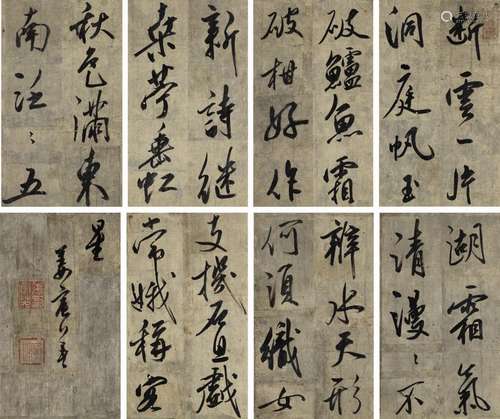 斷雲一片
洞庭帆玉
破鱸魚霜
破柑好作
新詩継
桑苧垂虹
秋色滿東
南泛〻五
湖霜氣
清漫〻不
辨水天形
何須織女
支機石且戲
常娥稱客
星
姜宸英